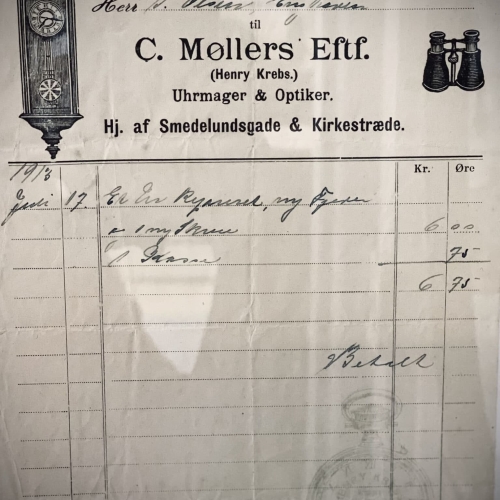 Herr
til
C. Møllers Eftf.
(Henry Krebs.)
Uhrmager & Optiker.
Hj. af Smedelundsgade & Kirkestræde.
Kr. Øre
1913
17. Et Ur ny Fjeder
1 ny 6 00
1 75
6 75
Betalt